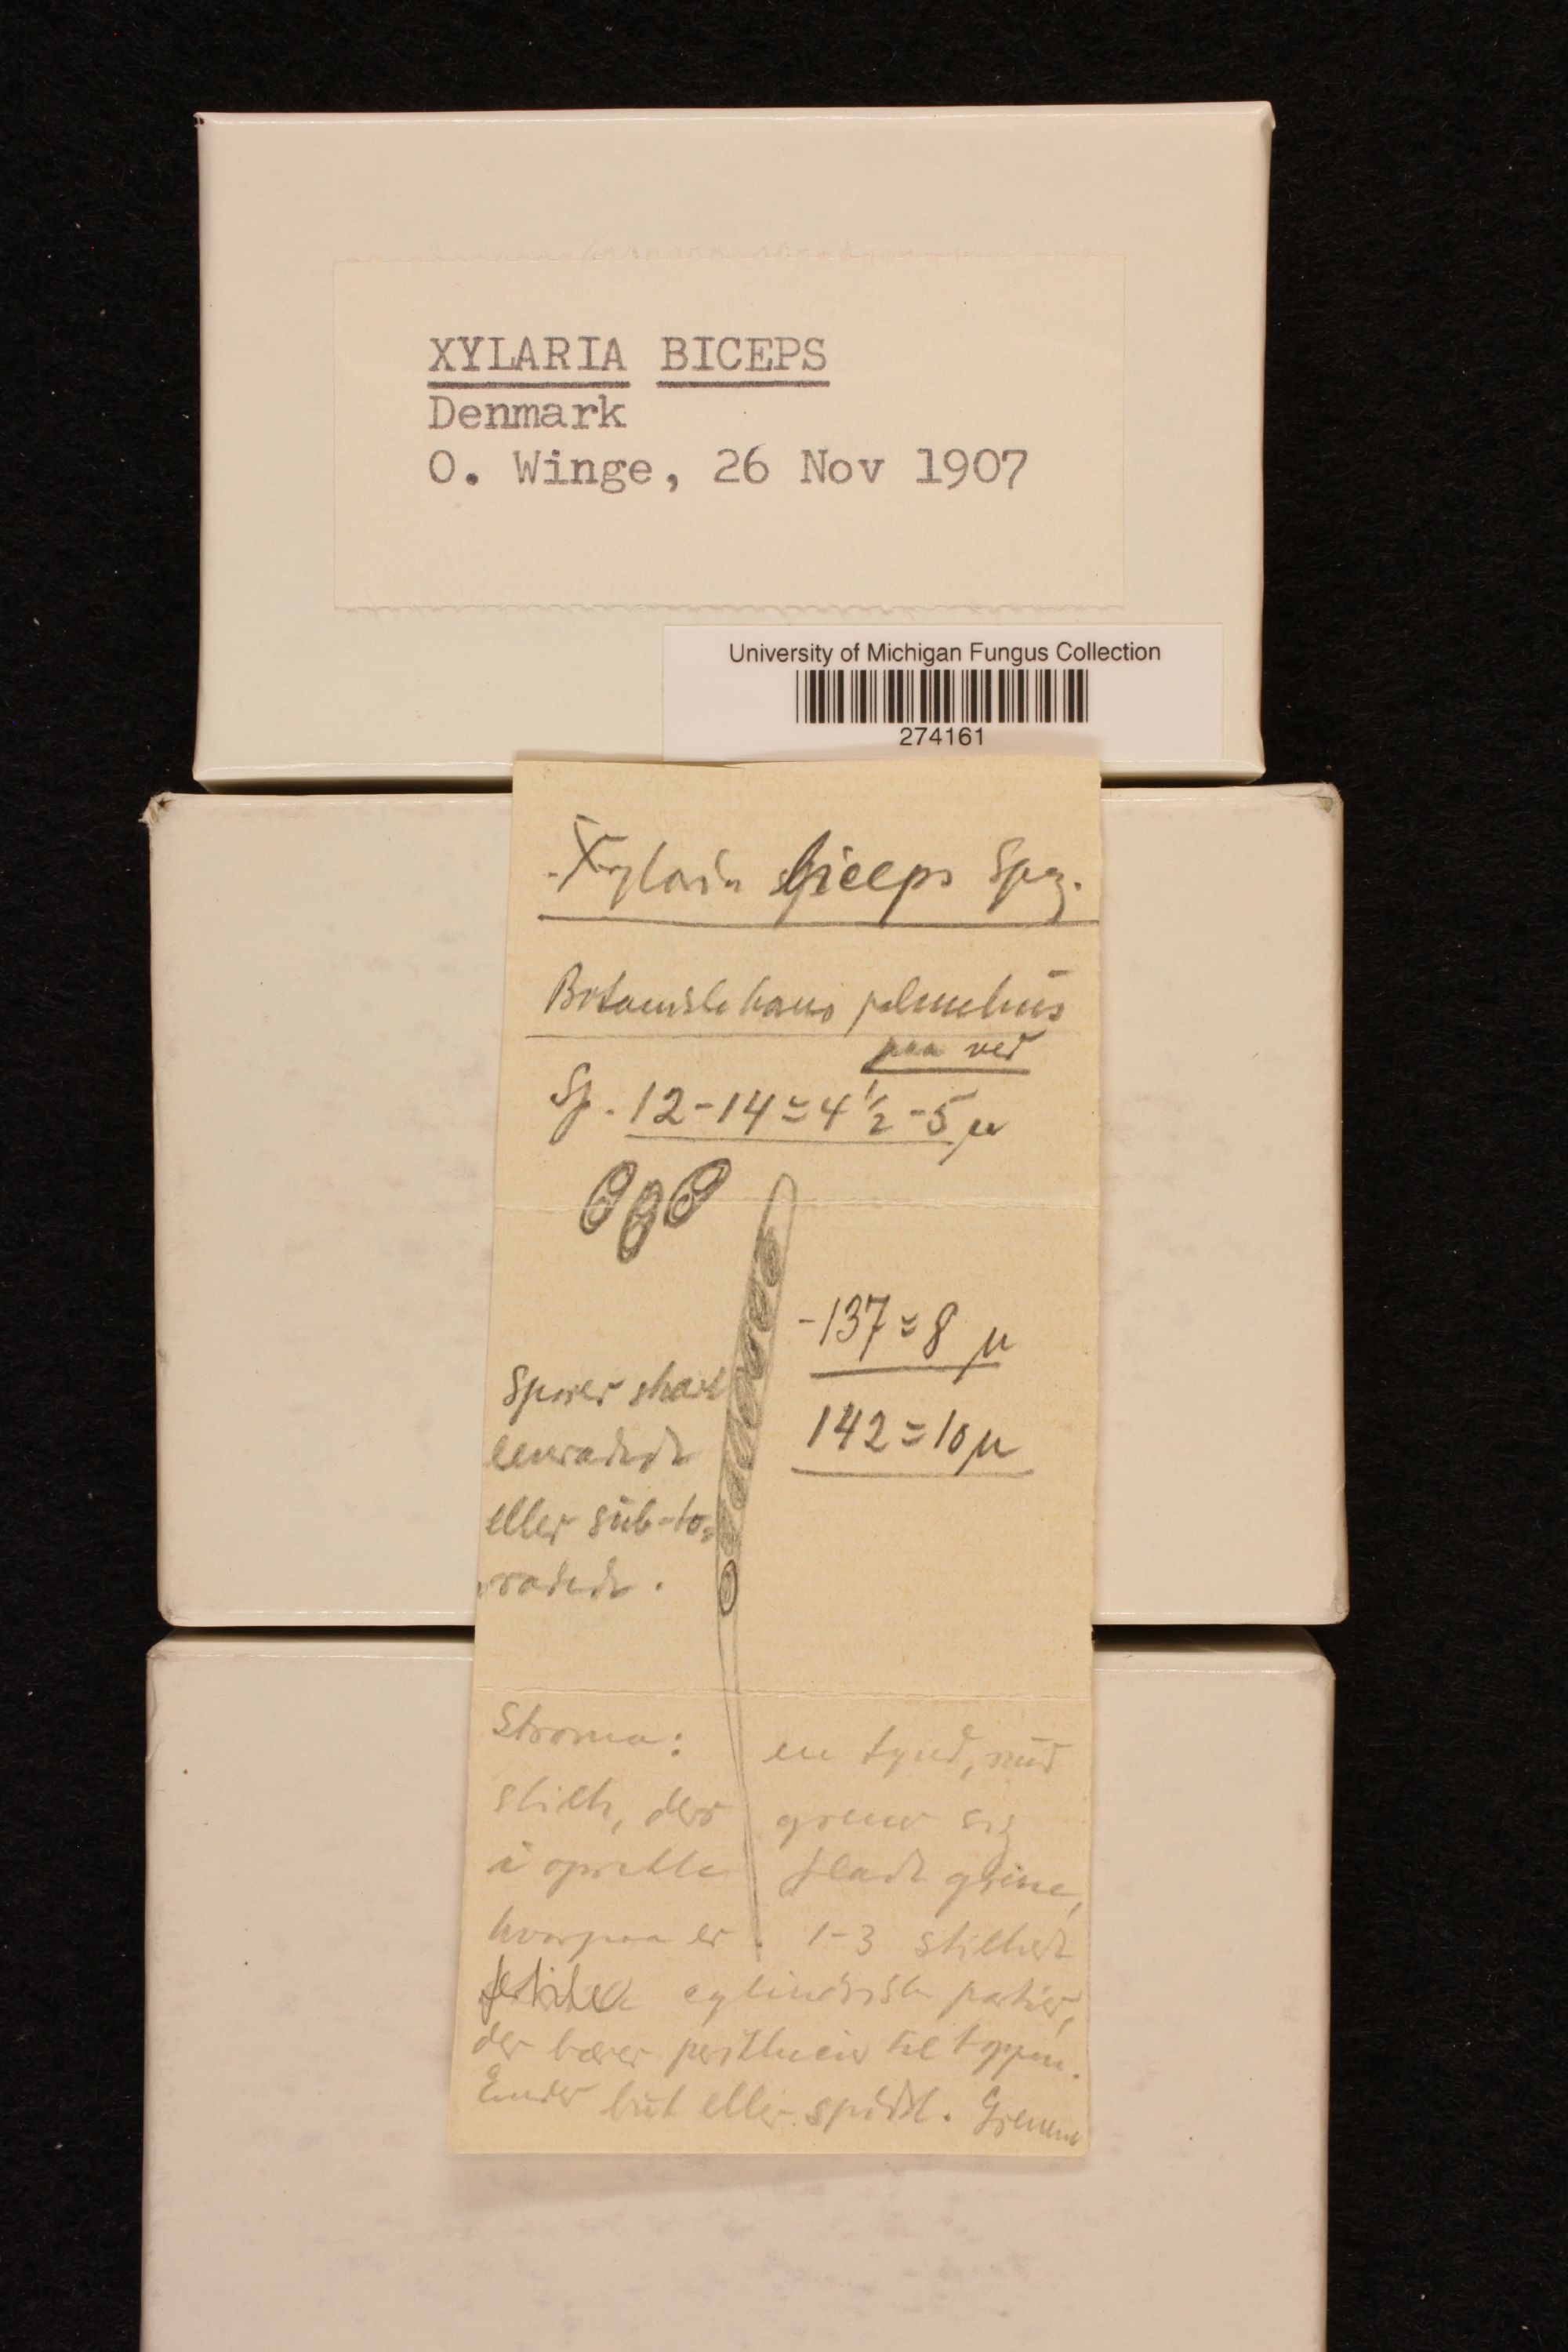 XYLARIA BICEPS
Denmark
O. Winge, 26 Nov 1907
University of Michigan Fungus Collection
274161
Xylaria biceps Speg.
Botanisk haves palmehus
paa ved
Sp. 12-14 = 4 1/2 - 5 µ
-137 = 8 µ
142 = 10 µ
Sporer skraat
enradede
eller sub-to=
radede.
Stroma: en tynd,
stilk, der grener sig
i oprette flade grene,
hvorpaa er 1-3 stilkede
fertile cylindriske partier,
der bærer perithecier til toppen.
Ender but eller spidst. Grenene